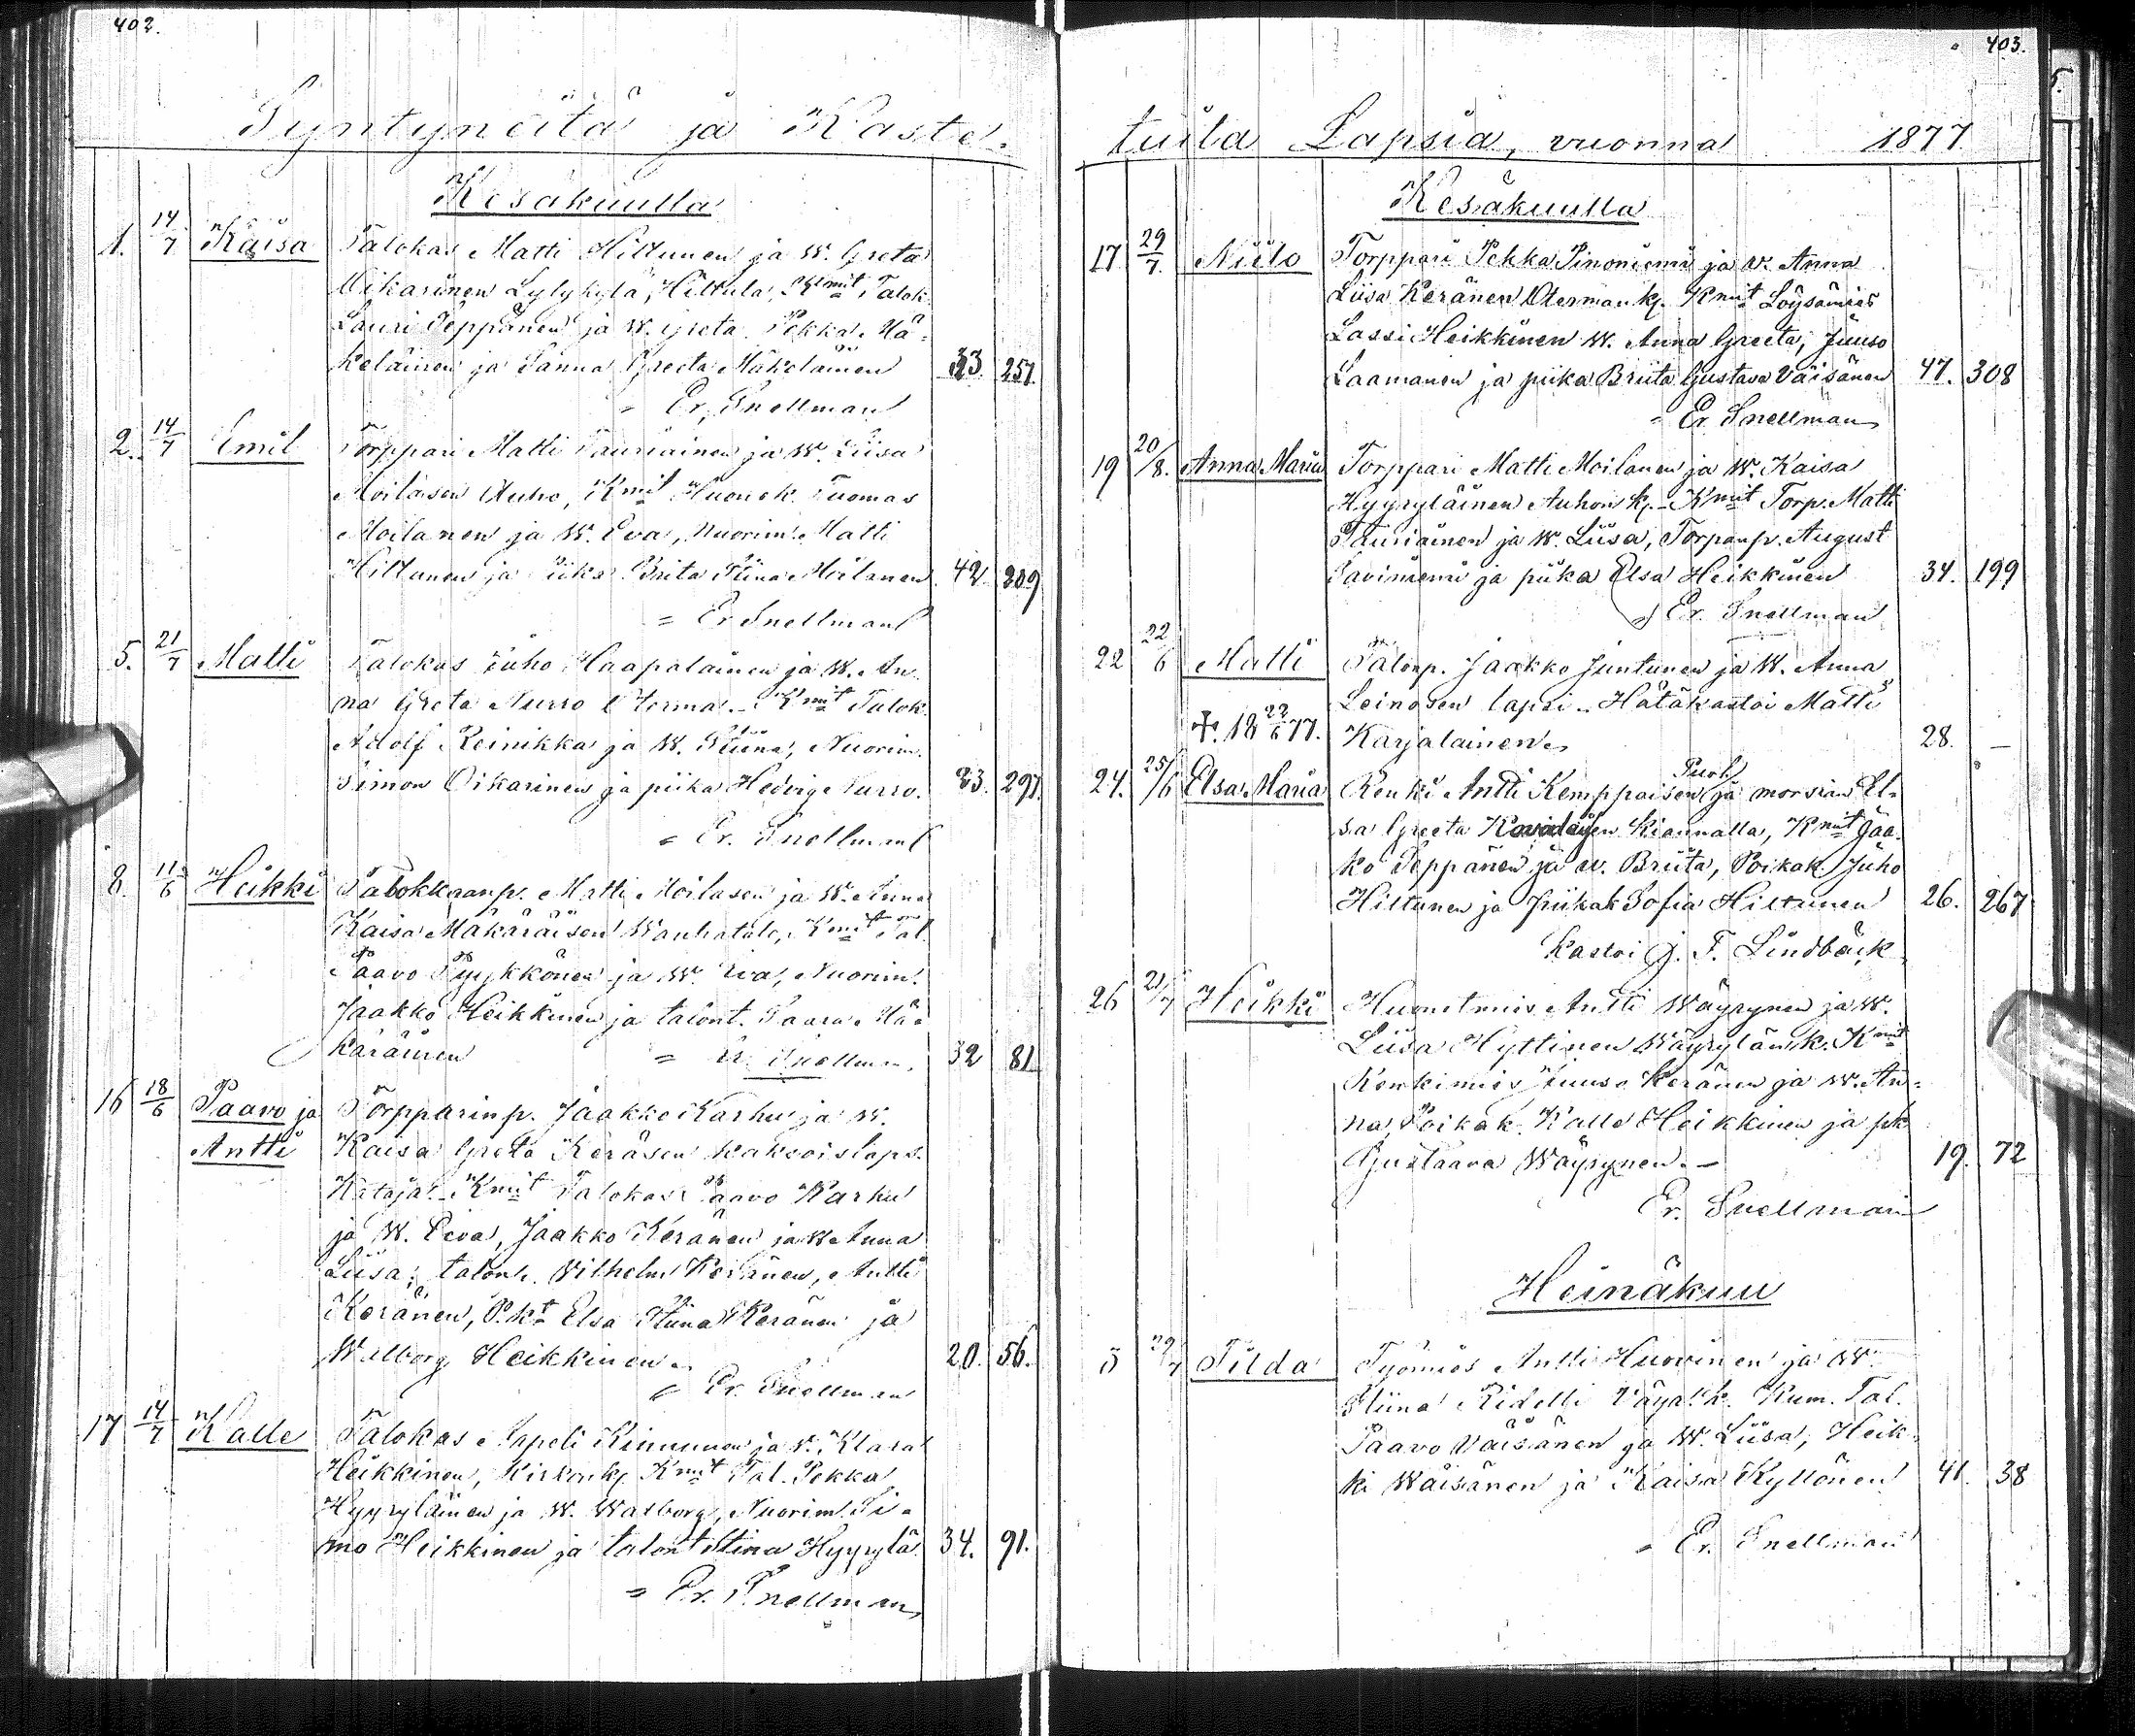 402.
Syntyneitä ja Kaste-
Kesäkuulla
1. 14/7 Kaisa Talokas Matti Hiltunen ja W. Greta
Mikarinen Lylykylä, Hiltula, Kmit Talok.
Lauri Seppänen ja W. Greta. Pekka Mä-
keläinen ja Sanna Greeta Mäkeläinen 33. 257.
= Er. Snellman
2. 14/7 Emil Torppari Matti Tauriainen ja W. Liisa
Moilasen Auho, Kmit Huonek. Tuomas
Moilanen ja W. Eva, Nuorim. Matti
Hiltunen ja Piika Brita Stina Moilanen 42. 209
= Er Snellman
5. 21/7 Matti Talokas Juho Haapalainen ja W. An-
na Greta Nurro Oterma. - Kmit Talok.
Adolf Reinikka ja W. Stiina, Nuorim.
Simon Oikarinen ja piika Hedvig Nurro. 23. 291.
= Er. Snellman
8. 11/6 Heikki Talokkaanp. Matti Moilasen ja W. Anna
Kaisa Mäkäräisen Wanhatalo, Kmit Tal.
Paavo Pyykkönen ja W. Eva, Nuorim.
Jaakko Heikkinen ja talont. Saara Mä-
käräinen = Er. Snellman 32 81
16 18/6 Paavo ja Torpparinp. Jaakko Karhu ja W.
Antti Kaisa Greta Keräsen kaksoislaps.
Kataja. Kmit Talokas Paavo Karhu
ja W. Eeva, Jaakko Keränen ja W Anna
Liisa; talonp. Vilhelm Keränen, Antti
Keränen, P.kt Elsa Stiina Keränen ja
Walborg Heikkinen. 20. 56.
= Er. Snellman
17 14/7 Kalle Talokas Aapeli Kinnunen ja v. Klara
Heikkinen, Kirkonkp. Kmit Tal. Pekka
Hyyryläinen ja W. Walborg, Nuorim. Si-
mo Heikkinen ja talont Stina Hyyrylä. 34. 91.
= Er. Snellman
403.
tuita Lapsia, vuonna 1877
Kesäkuulla
17 29/7. Niilo Torppari Pekka Pinoniemi ja W. Anna
Liisa Keränen Oterman k. Kmit Löysämies
Lassi Heikkinen W. Anna Greeta, Juuso
Laamanen ja piika Briita Gustava Väisänen 47. 308
= Er Snellman
19 20/8. Anna Maria Torppari Matti Moilanen ja W. Kaisa
Hyyryläinen Auhon k. - Kmit Torp. Matti
Tauriainen ja W. Liisa, Torpanp. August
Saviniemi ja piika Elsa Heikkinen 34. 199
Er. Snellman
22 22/6 Matti Talonp. Jaakko Juntunen ja W. Anna
Leinosen lapsi - Hätäkastoi Matti
†. 18 22/6 77. Karjalainen. 28. -
24. 25/6 Elsa Maria Renki Antti Kemppaisen ja morsian El-
sa Greeta Kiannalla, Kmit Jaa-
ko Seppänen ja w. Briita, Poikak. Juho
Hiltunen ja piikak Sofia Hiltunen 26. 267
Kastoi J. F. Lindbäck
26 21/7 Heikki Huonetmies Antti Wäyrynen ja W.
Liisa Hyttinen Wäyrylänk. Kmit
Renkimies Juuso Keränen ja W. An-
na, Poikak. Kalle Heikkinen ja pk
Gustaava Wäyrynen. - 19. 72
Er. Snellman
Heinäkuu
5 29/7 Tilda Työmies Antti Huovinen ja W.
Stiina Ridelli Väyal.k. Kum. Tal.
Paavo Väisänen ja W. Liisa, Heik-
ki Wäisänen ja Kaisa Kyllönen 41. 38
= Er. Snellman